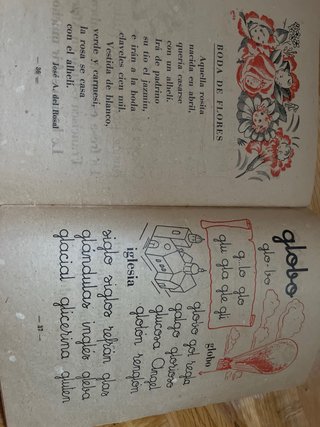 BODA DE FLORES
Aquella rosita
nacida en abril,
quería casarse
con un alhelí.
Irá de padrino
su tío el jazmín,
e irán a la boda
claveles cien mil.
Vestida de blanco,
verde y carmesí,
la rosa se casa
con el alhelí.
José A. del Rosal
— 36 —
globo
glo-bo
g lo glo
glu gla gle gli
globo
iglesia
globo gol regla
galgo glorioso
glucosa Angel
glotón renglón
siglo siglos refrán glas
glándulas inglés gleba
glacial glicerina
— 37 —